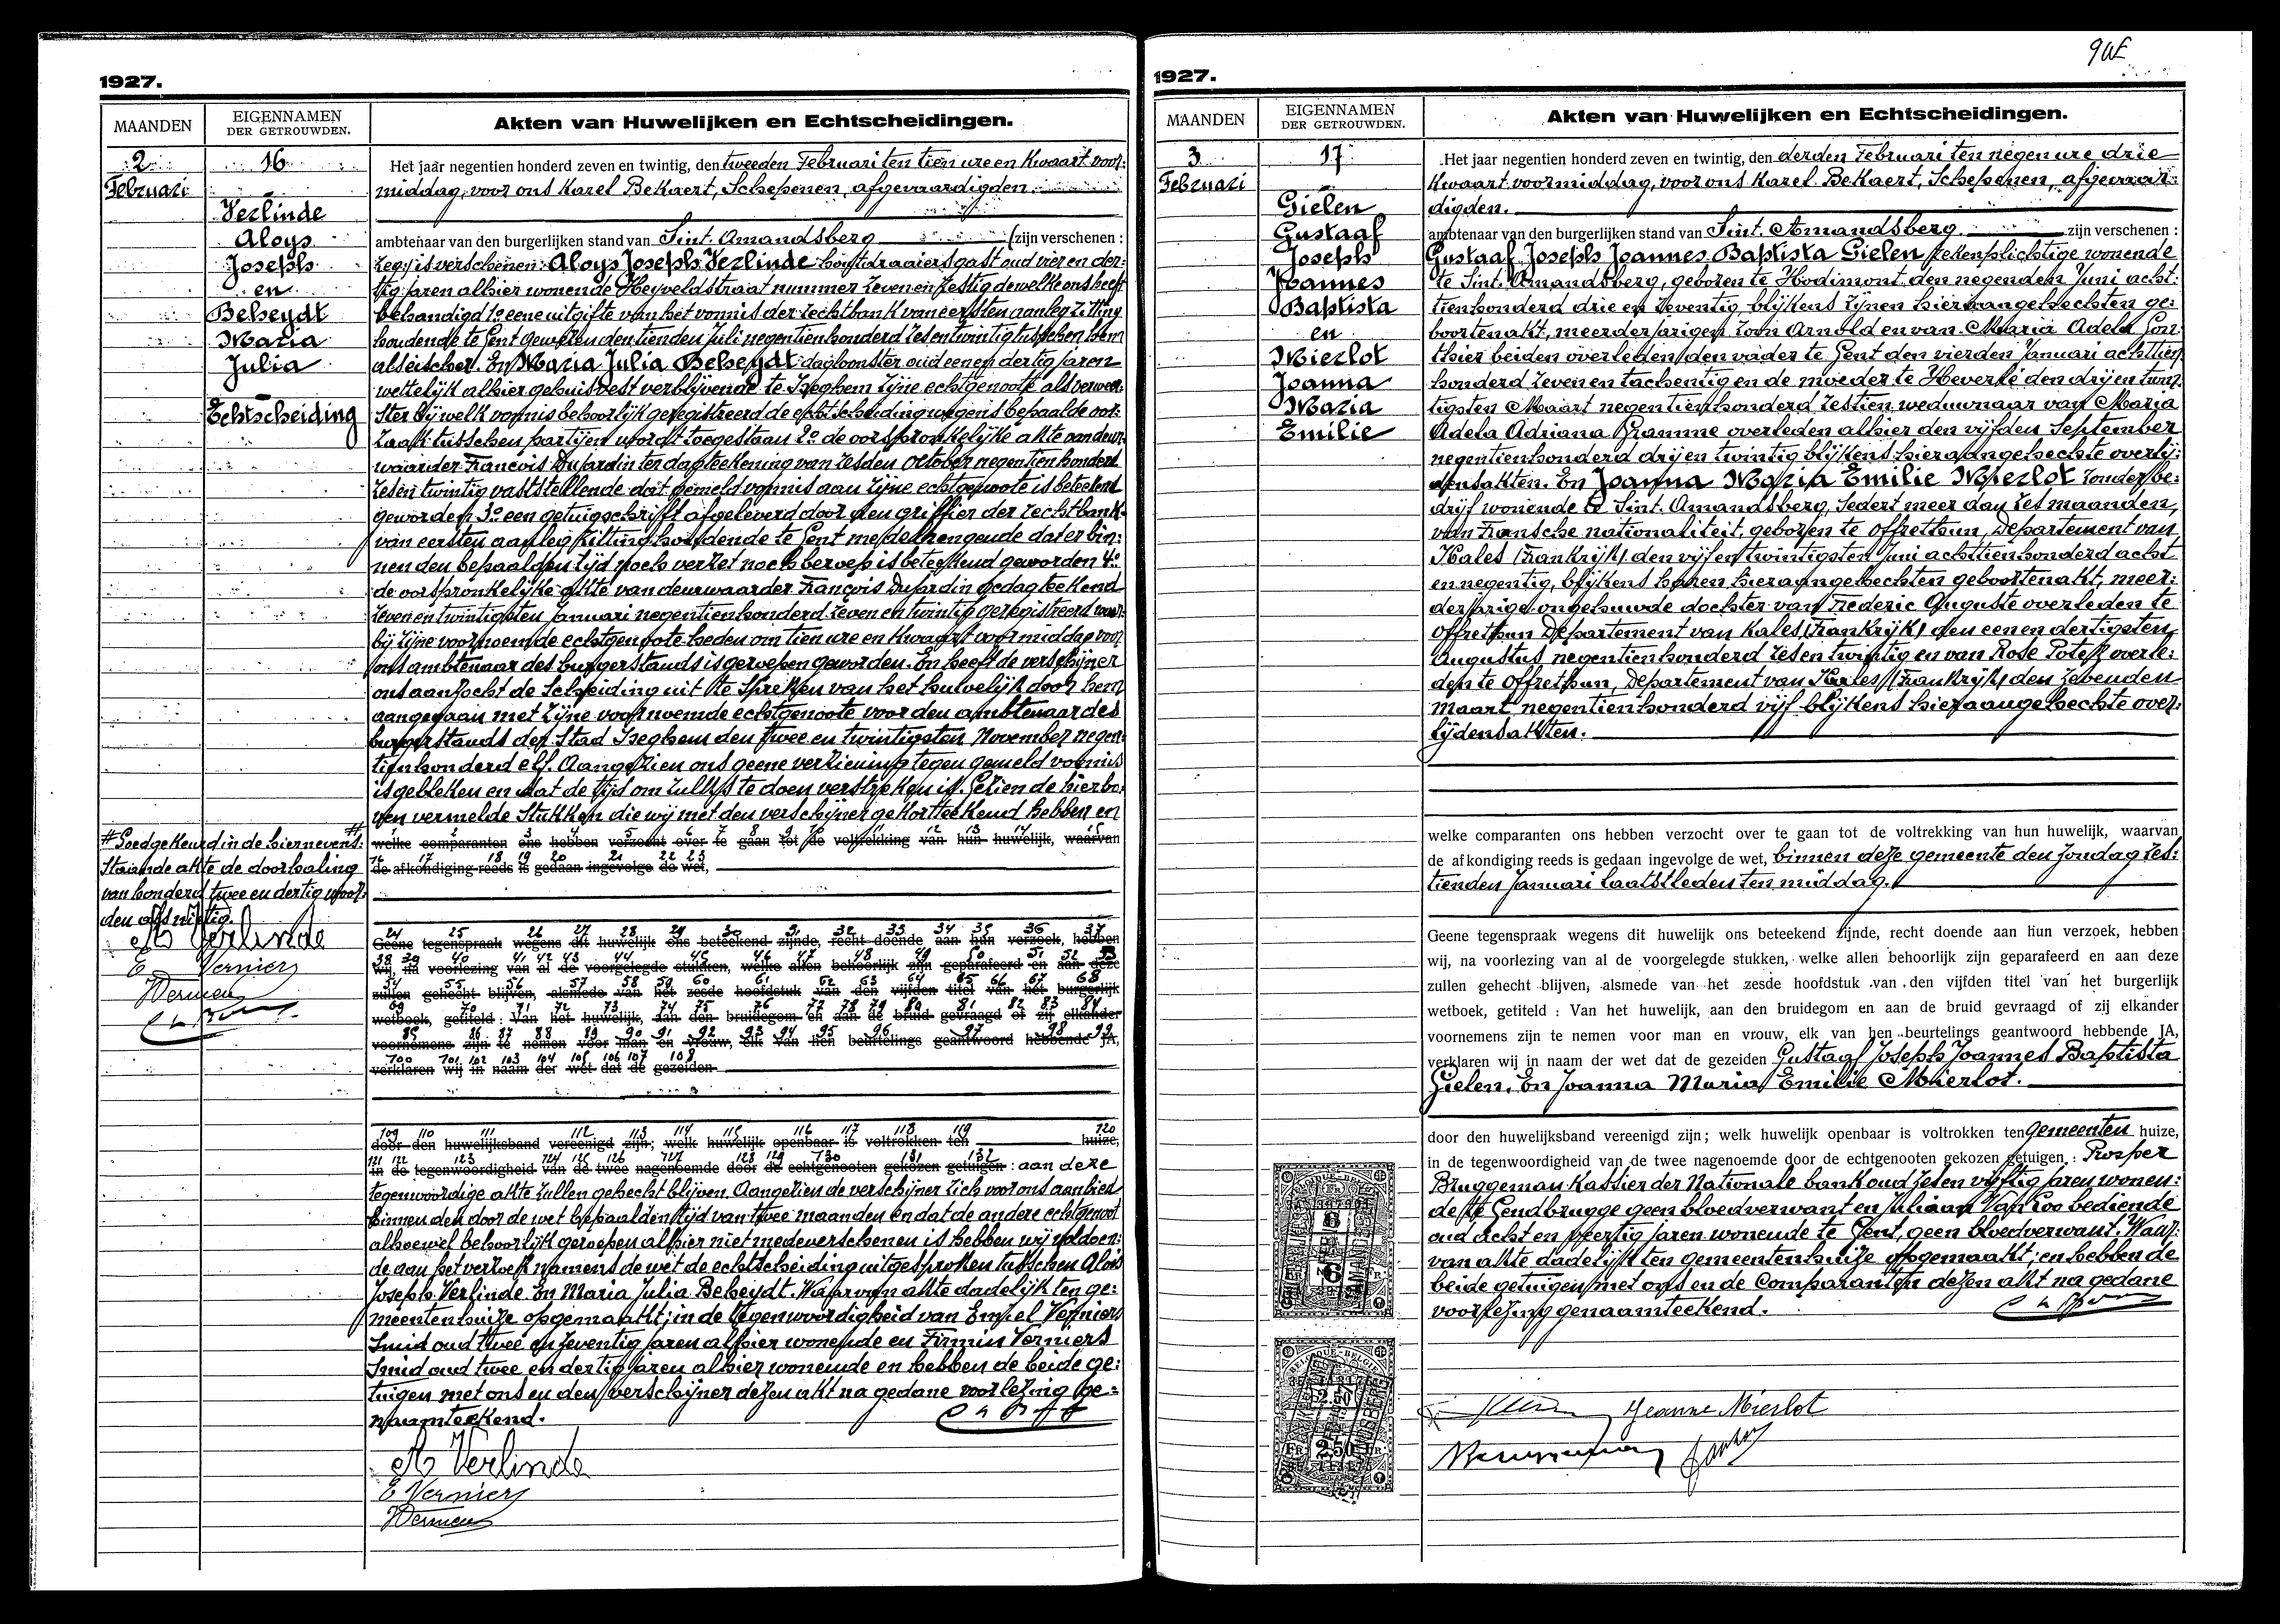 1927.
MAANDEN
EIGENNAMEN
DER GETROUWDEN.
Akten van Huwelijken en Echtscheidingen.
2
Februari
16
Verlinde
Aloys
Joseph
en
Beheydt
Maria
Julia
Echtscheiding
Het jaar negentien honderd zeven en twintig, den tweeden Februari ten tien ure en kwaart voor:
middag, voor ons Karel Bekaert, Schepenen, afgevaardigden
ambtenaar van den burgerlijken stand van Sint. Amandsberg (zijn verschenen :
zeg: is verschenen: Aloys Joseph Verlinde houtdraaiersgast oud vier en der:
tig jaren alhier wonende Heyveldstraat nummer zeven en zestig dewelke ons heeft
behandigd 1o eene uitgifte van het vonnis der rechtbank van eersten aanleg zitting
houdende te Gent gewezen den tienden Juli negentienhonderd zesentwintig tusschen hem
als eischer. En Maria Julia Beheydt dagloonster oud eenen dertig jaren
wettelijk alhier gehuisvest verblijvende te Iseghem zijne echtgenoote als verwee:
ster bij welk vonnis behoorlijk geregistreerd de echtscheiding wegens bepaalde oor:
zaak tusschen partijen wordt toegestaan 2o de oorspronkelijke akte van deur:
waarder François Dujardin ter dagteekening van zesden October negentien honderd
zesen twintig vaststellende dat gemeld vonnis aan zijne echtgenoote is beteekend
geworden 3o een getuigschrift afgeleverd door den griffier der rechtbank
van eersten aanleg zitting houdende te Gent medebrengende dat er bin:
nen den bepaalden tijd noch verzet noch beroep is beteekend geworden 4o
de oorspronkelijke akte van deurwaarder François Dujardin gedagteekend
zeven en twintigsten Januari negentienhonderd zeven en twintig geregistreerd waar:
bij zijne voornoemde echtgenoote heden om tien ure en kwaart voormiddag voor
ons ambtenaar des burgerstands is geroepen geworden. En heeft de verschijner
ons aanzocht de scheiding uit te spreken van het huwelijk door hem
aangegaan met zijne voornoemde echtgenoote voor den ambtenaar des
burgerstands der Stad Iseghem den twee en twintigsten November negen:
tienhonderd elf. Aangezien ons geene verziening tegen gemeld vonnis
is gebleken en dat de tijd om zulks te doen verstreken is. Gezien de hierbo:
ven vermelde stukken die wij met den verschijner gekortteekend hebben en
# Goedgekeurd in de hiernevens:
staande akte de doorhaling
van honderd twee en dertig woor:
den als nietig.
A Verlinde
E Verniers
FVerniers
welke comparanten ons hebben verzocht over te gaan tot de voltrekking van hun huwelijk, waarvan
de afkondiging reeds is gedaan ingevolge de wet,
Geene tegenspraak wegens dit huwelijk ons beteekend zijnde, recht doende aan hun verzoek, hebben
wij, na voorlezing van al de voorgelegde stukken, welke allen behoorlijk zijn geparafeerd en aan deze
zullen gehecht blijven, alsmede van het zesde hoofdstuk van den vijfden titel van het burgerlijk
wetboek, getiteld : Van het huwelijk, aan den bruidegom en aan de bruid gevraagd of zij elkander
voornemens zijn te nemen voor man en vrouw, elk van hen beurtelings geantwoord hebbende JA,
verklaren wij in naam der wet dat de gezeiden
door den huwelijksband vereenigd zijn; welk huwelijk openbaar is voltrokken ten huize,
in de tegenwoordigheid van de twee nagenoemde door de echtgenooten gekozen getuigen : aan deze
tegenwoordige akte zullen gehecht blijven. Aangezien de verschijner zich voor ons aanbied
binnen den door de wet bepaalden tijd van twee maanden en dat de andere echtgenoot
alhoewel behoorlijk geroepen alhier niet medeverschenen is hebben wij voldoen:
de aan het verzoek namens de wet de echtscheiding uitgesproken tusschen Aloïs
Joseph Verlinde. En Maria Julia Beheydt. Waarvan akte dadelijk ten ge:
meentenhuize opgemaakt; in de tegenwoordigheid van Emiel Verniers
Smid oud twee en zeventig jaren alhier wonende en Firmin Verniers
Smid oud twee en dertig jaren alhier wonende en hebben de beide ge:
tuigen met ons en den verschijner dezen akt na gedane voorlezing ge=
naamteekend.
A Verlinde
E Verniers
FVerniers
1927.
MAANDEN
EIGENNAMEN
DER GETROUWDEN.
Akten van Huwelijken en Echtscheidingen.
3
Februari
17
Gielen
Gustaaf
Joseph
Joannes
Baptista
en
Mierlot
Joanna
Maria
Emilie
Het jaar negentien honderd zeven en twintig, den derden Februari ten negen ure drie
kwaart voormiddag, voor ons Karel Bekaert, Schepenen, afgevaar:
digden.
ambtenaar van den burgerlijken stand van Sint. Amandsberg. zijn verschenen :
Gustaaf Joseph Joannes Baptista Gielen rekenplichtige wonende
te Sint. Amandsberg, geboren te Hodimont den negenden Juni acht:
tienhonderd drie en zeventig, blijkens zijnen hieraangehechten ge:
boortenakt, meerderjarigen zoon Arnold en van Maria Adela Gon:
thier beiden overleden, den vader te Gent den vierden Januari achttien
honderd zeven en tachentig en de moeder te Heverlé den drij en twin:
tigsten Maart negentienhonderd zestien weduwnaar van Maria
Adela Adriana Gramme overleden alhier den vijfden September
negentienhonderd drij en twintig blijkens hieraangehechte overlij:
densakten. En Joanna Maria Emilie Mierlot zonder be:
drijf wonende te Sint. Amandsberg, sedert meer dan zes maanden,
van Fransche nationaliteit, geboren te Offrethun, Departement van
Kales (Frankrijk), den vijf en twintigsten Juni achttienhonderd acht
en negentig, blijkens haren hieraangehechten geboortenakt, meer:
derjarige ongehuwde dochter van Frederic Auguste overleden te
Offrethun Departement van Kales (Frankrijk) den eenen dertigsten
Augustus negentienhonderd zesen twintig en van Rose Potez overle:
den te Offrethun, Departement van Kales (Frankrijk) den zevenden
maart negentienhonderd vijf blijkens hieraangehechte over:
lijdensakten.
welke comparanten ons hebben verzocht over te gaan tot de voltrekking van hun huwelijk, waarvan
de afkondiging reeds is gedaan ingevolge de wet, binnen deze gemeente den zondag zes:
tienden Januari laatstleden ten middag.
Geene tegenspraak wegens dit huwelijk ons beteekend zijnde, recht doende aan hun verzoek, hebben
wij, na voorlezing van al de voorgelegde stukken, welke allen behoorlijk zijn geparafeerd en aan deze
zullen gehecht blijven, alsmede van het zesde hoofdstuk van den vijfden titel van het burgerlijk
wetboek, getiteld : Van het huwelijk, aan den bruidegom en aan de bruid gevraagd of zij elkander
voornemens zijn te nemen voor man en vrouw, elk van hen beurtelings geantwoord hebbende JA,
verklaren wij in naam der wet dat de gezeiden Gustaaf Joseph Joannes Baptista
Gielen. En Joanna Maria Emilie Mierlot.
door den huwelijksband vereenigd zijn; welk huwelijk openbaar is voltrokken ten gemeenten huize,
in de tegenwoordigheid van de twee nagenoemde door de echtgenooten gekozen getuigen : Prosper
Bruggeman Kassier der Nationale bank oud zesen vijftig jaren wonen:
de te Gendbrugge geen bloedverwant en Juliaan Van Loo bediende
oud acht en veertig jaren wonende te Gent, geen bloedverwant. Waar:
van akte dadelijk ten gemeentenhuize opgemaakt; en hebben de
beide getuigen met ons en de Comparanten dezen akt na gedane
voorlezing genaamteekend.
Jeanne Mierlot